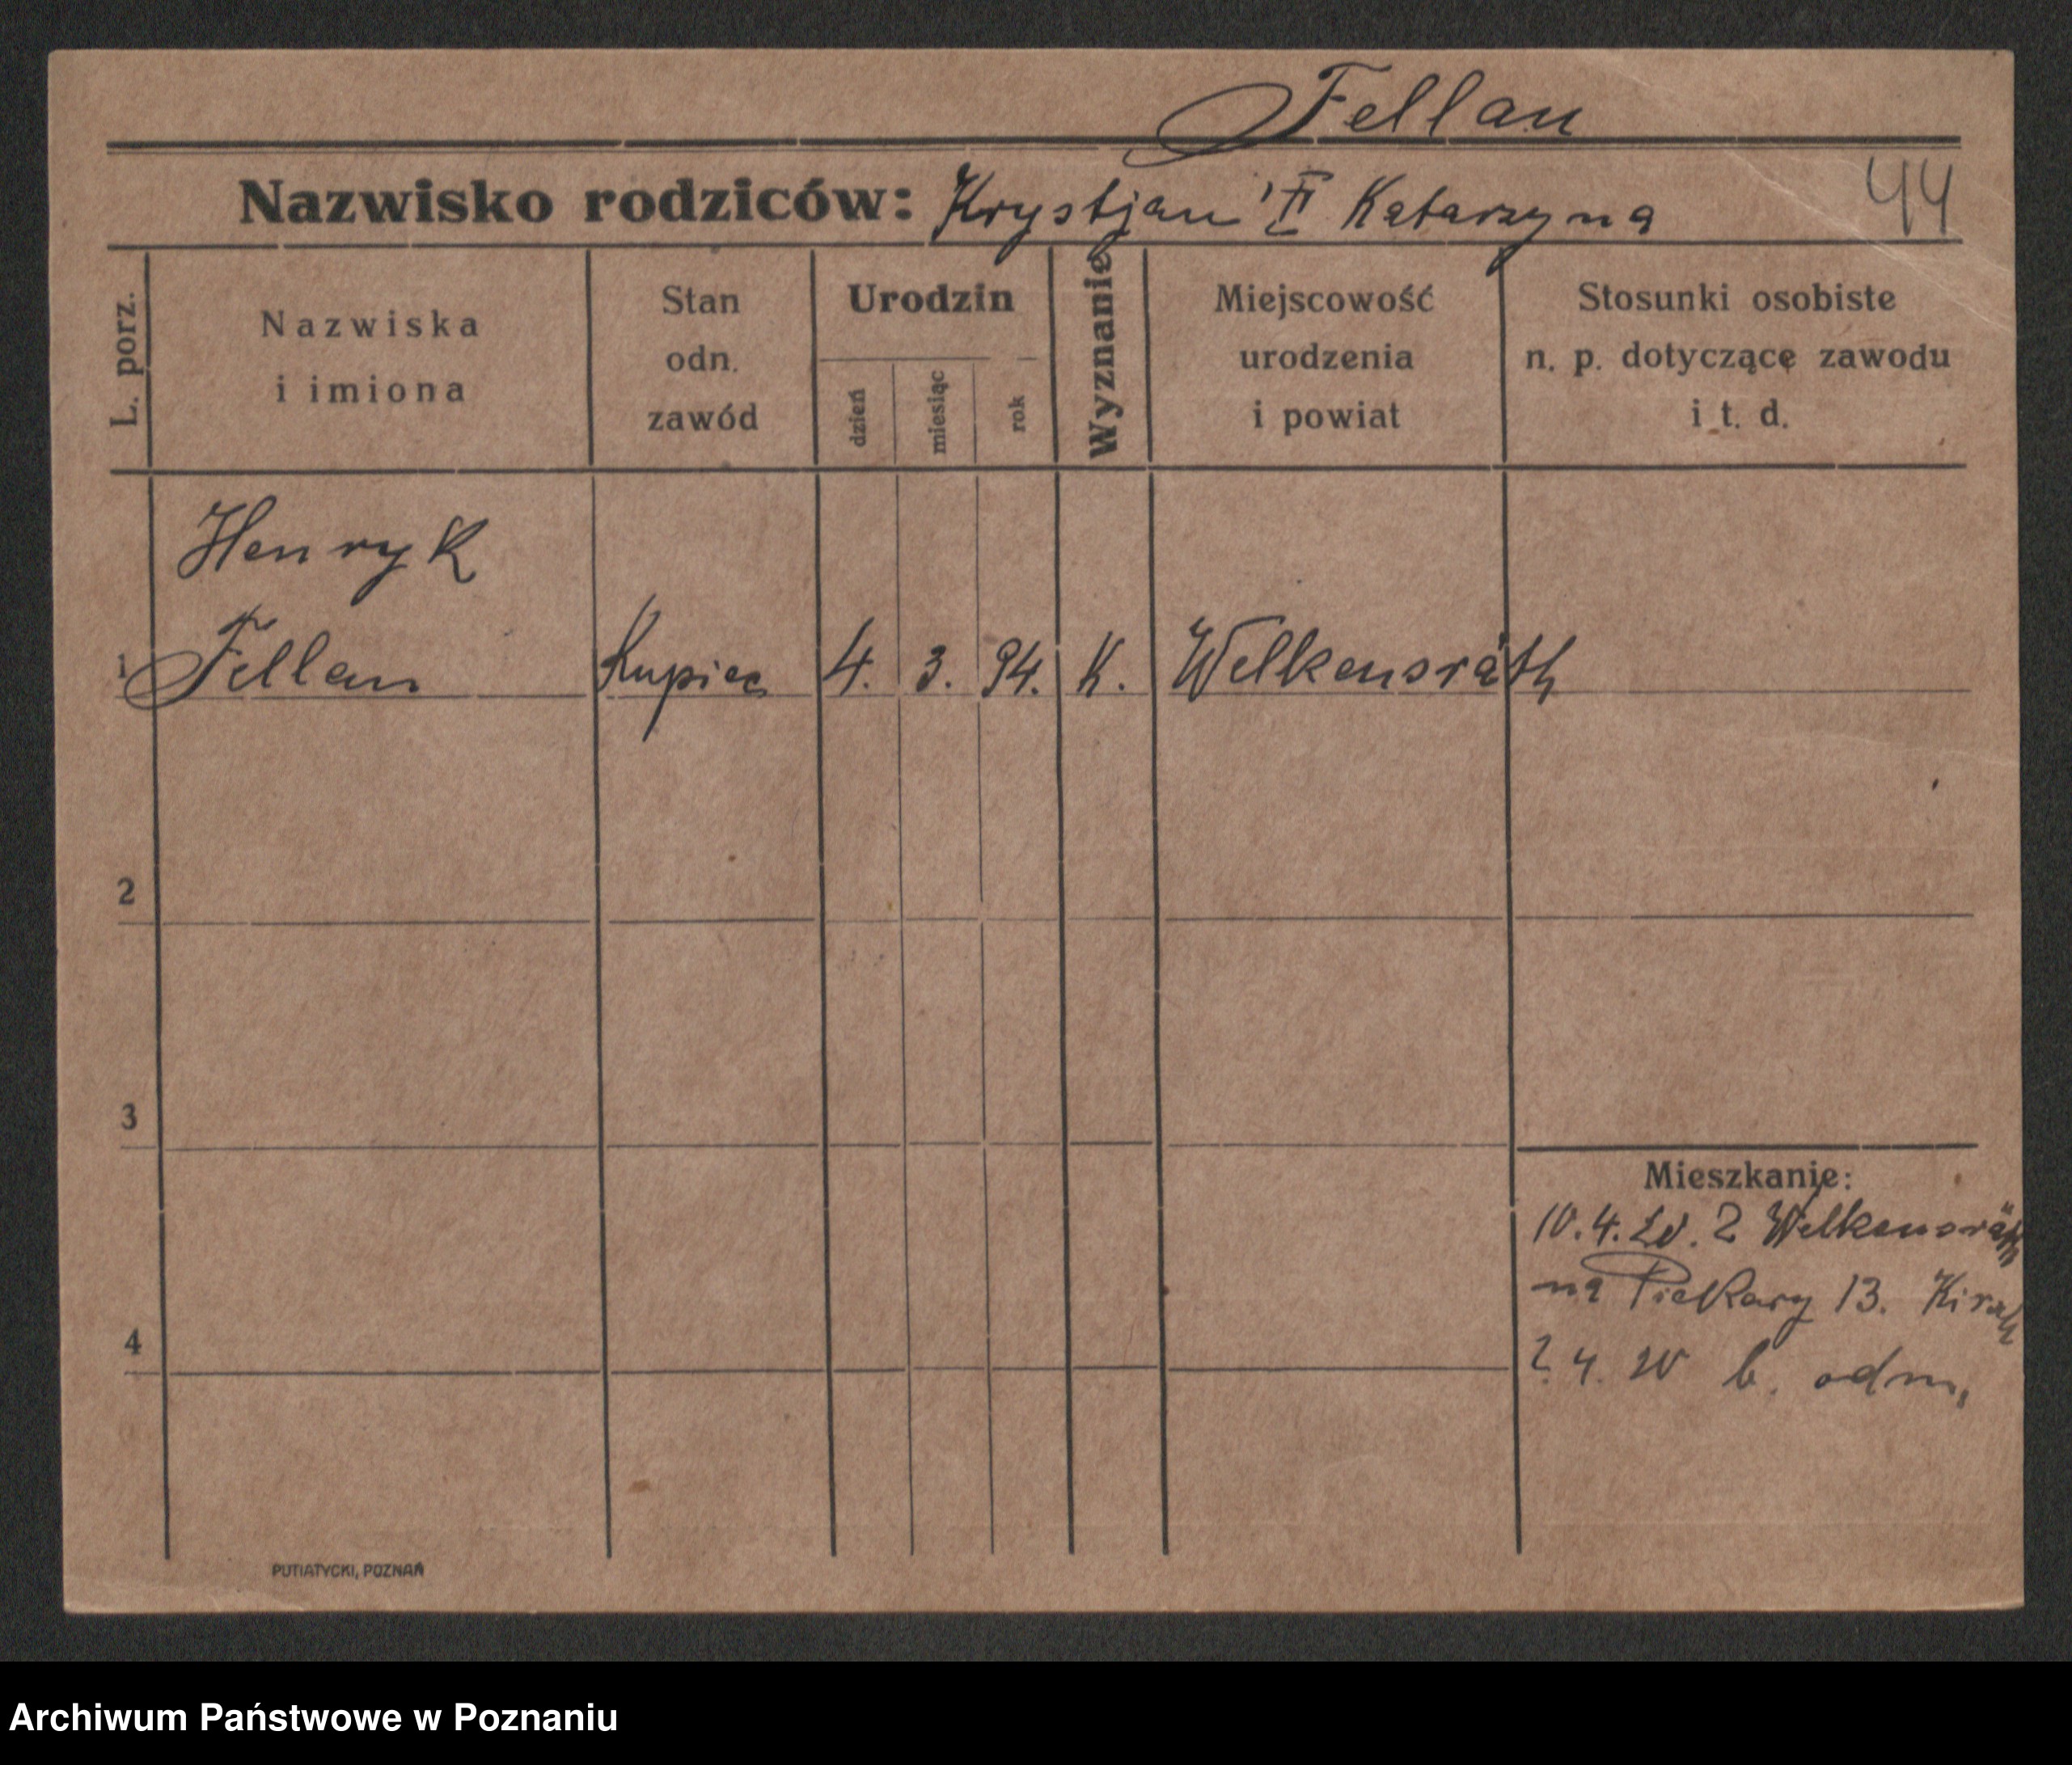 Fellan
Nazwisko rodziców: Krystjan Katarzyna 44
L. porz.
Nazwiska
i imiona
Stan
odn.
zawód
Urodzin
dzień
miesiąc
rok
Wyznanie
Miejscowość
urodzenia
i powiat
Stosunki osobiste
n. p. dotyczące zawodu
i t. d.
Henryk
1 Fellan Kupiec 4. 3. 94. K. Welkensräth
2
3
Mieszkanie:
10.4. 20. z Welkensräth
na Piekary 13.
4
2.4. 20 b. odm.
PUTIATYCKI, POZNAŃ
Archiwum Państwowe w Poznaniu